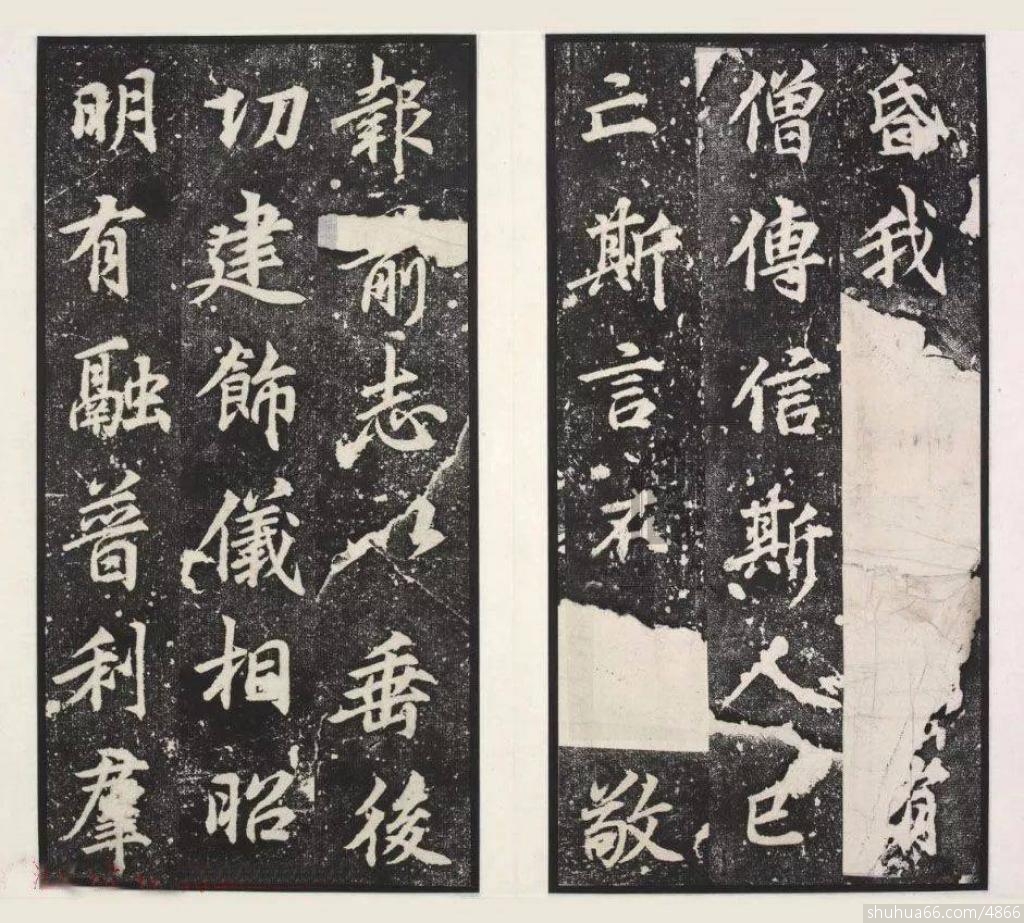 昏我
僧傳信斯人已
亡斯言不敬
報前志以垂後
切建飾儀相昭
明有融普利羣
shuhua66.com/4866